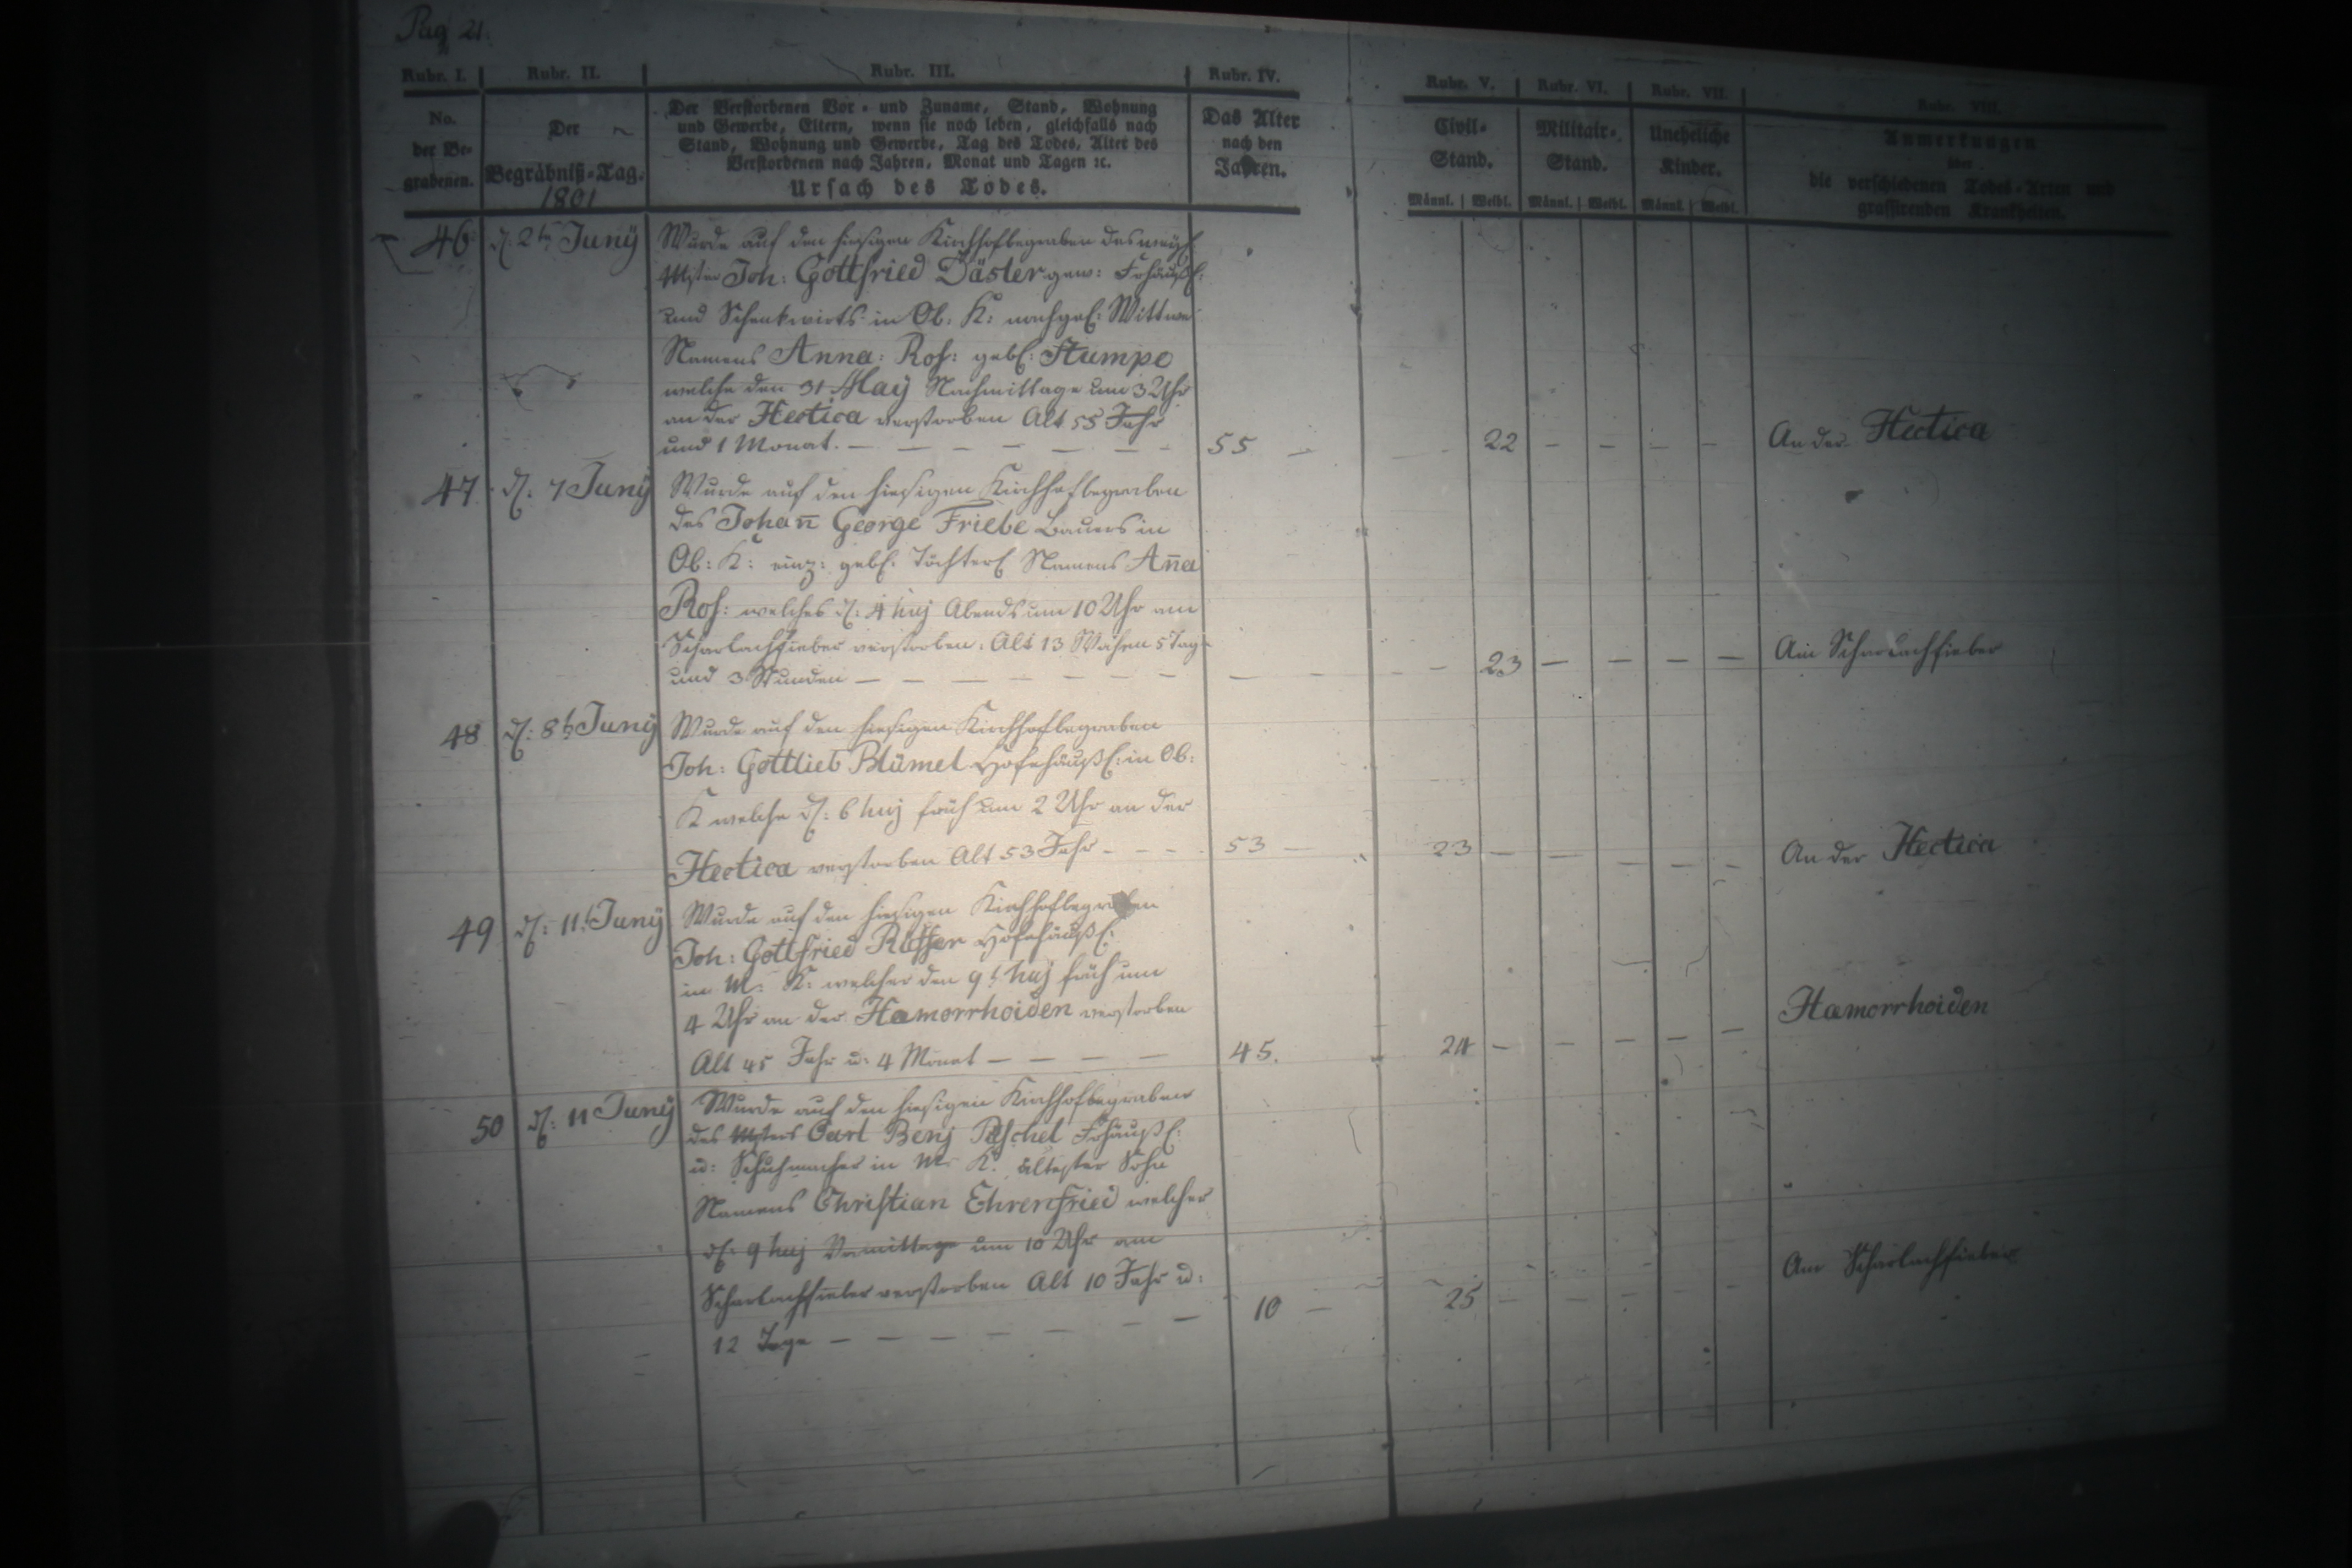 Pag 21.
Rubr. I.
No.
der Be-
grabenen.
Rubr. II.
Der
Begräbniß-Tag.
1801
Rubr. III.
Der Verstorbenen Vor- und Zuname, Stand, Wohnung
und Gewerbe, Eltern, wenn sie noch leben, gleichfalls nach
Stand, Wohnung und Gewerbe, Tag des Todes, Alter des
Verstorbenen nach Jahren, Monat und Tagen ꝛc.
Ursach des Todes.
Rubr. IV.
Das Alter
nach den
Jahren.
Rubr. V.
Civil-
Stand.
Männl. Weibl.
Rubr. VI.
Militair-
Stand.
Männl. Weibl.
Rubr. VII.
Uneheliche
Kinder.
Männl. Weibl.
Rubr. VIII.
Anmerkungen
über
die verschiedenen Todes-Arten und
grassirenden Krankheiten.
46 d. 2t Juny
Wurde auf den hiesigen Kirchhof begraben des weyl
Mstr Joh: Gottfried Däsler gew: Frhäußl:
und Schenkwirts in Ob: K: nachgel: Wittwe
Namens Anna: Ros: geb: Stumpe
welche den 31 May Nachmittage um 3 Uhr
an der Hectica verstorben Alt 55 Jahr
und 1 Monat. 55 22 An der Hectica
47 d. 7 Juny
Wurde auf den hiesigen Kirchhof begraben
des Johan̄ George Friebe Bauers in
Ob: K: einz: gebl: Töchterl Namens An̄a
Ros: welches d: 4 huj Abends um 10 Uhr am
Scharlachfieber verstorben. Alt 13 Wochen 5 Tag
und 3 Stunden 23 Am Scharlachfieber
48 d: 8t Juny
Wurde auf den hiesigen Kirchhof begraben
Joh: Gottlieb Blümel Hofehäußl: in Ob:
K welche d: 6 huj früh um 2 Uhr an der
Hectica verstorben Alt 53 Jahr 53 23 An der Hectica
49 d: 11t Juny
Wurde auf den hiesigen Kirchhof begraben
Joh: Gottfried Hofehäußl:
in M: K: welcher den 9t huj früh um
4 Uhr an der Hamorrhoiden verstorben
Alt 45 Jahr u: 4 Monat 45. 24 Hamorrhoiden
50 d: 11 Juny
Wurde auf den hiesigen Kirchhof begraben
des Mstrs Carl Benj Frhäußl:
u: Schuhmacher in M: K: ältester Sohn
Namens Christian Ehrenfried welcher
d: 9 huj Vormittage um 10 Uhr am
Scharlachfieber verstorben Alt 10 Jahr u:
12 Tage 10 25 Am Scharlachfieber